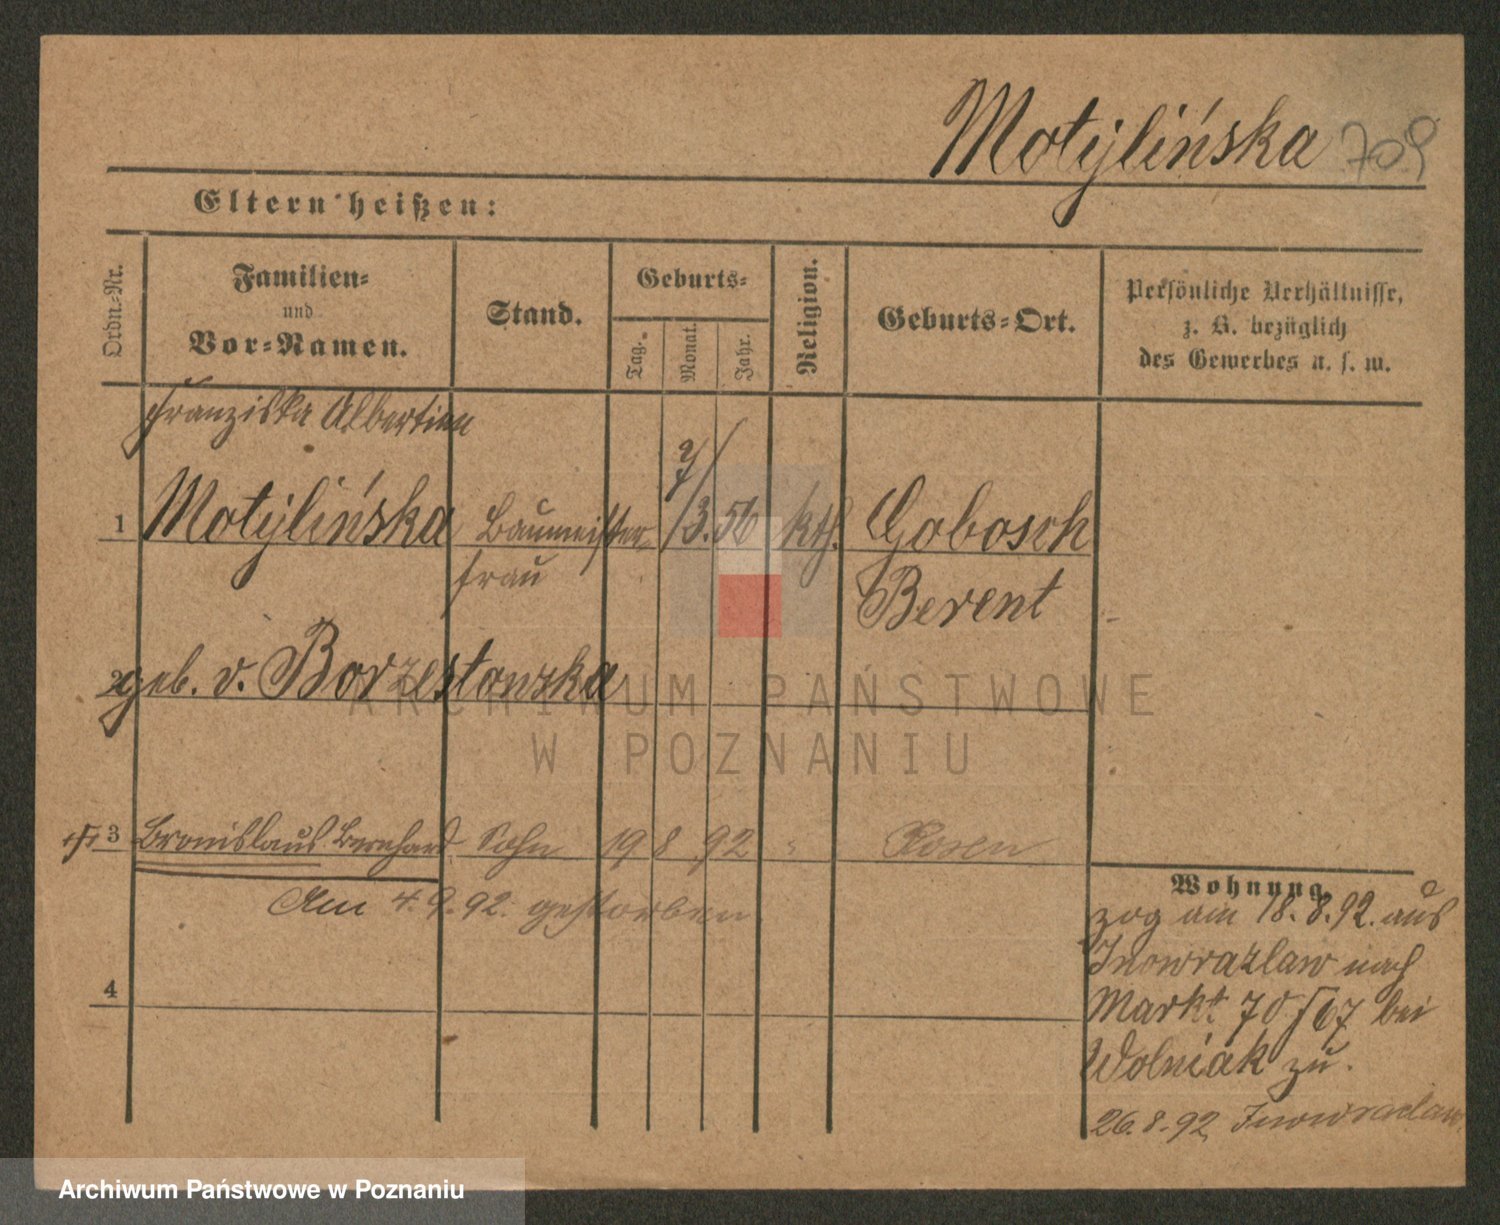 Motylińska 709
Eltern heißen:
Ordn.-Nr.
Familien-
und
Vor-Namen.
Stand.
Geburts-
Tag.
Monat.
Jahr.
Religion.
Geburts-Ort.
Persönliche Verhältnisse,
z. B. bezüglich
des Gewerbes u. s. w.
Franziska Albertine
1 Motylińska Baumeister- 7/3. 56 kth. Gobosch
frau Berent
2 geb. v. Borzestowska
ARCHIWUM PAŃSTWOWE
W POZNANIU
3 Bronislaus Bernhard Sohn 19 8 92 " Posen
Am 4.9.92. gestorben.
Wohnung.
zog am 18.8.92. aus
Inowrazlaw nach
Markt 70/67 bei
Wolniak zu.
26.8.92 Inowraclaw.
4
Archiwum Państwowe w Poznaniu